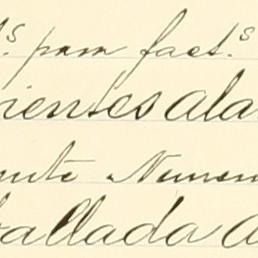 s. para fact.s
rientes ala
ente Numer
allada a